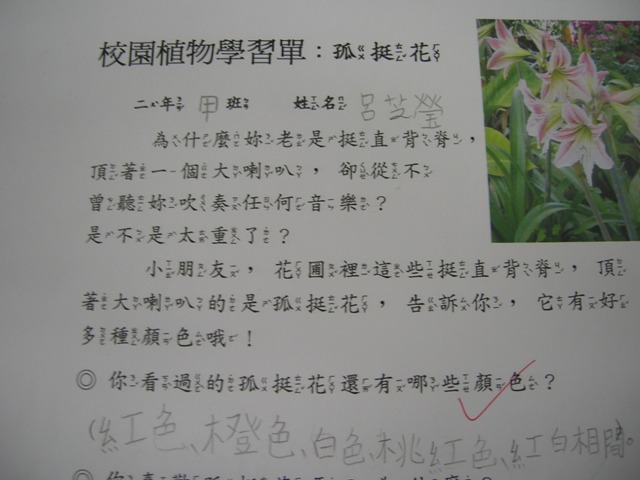 校園植物學習單：孤挺花
二年甲班 姓名呂芝瑩
為什麼妳老是挺直背脊，
頂著一個大喇叭，卻從不
曾聽妳吹奏任何音樂？
是不是太重了？
小朋友，花圃裡這些挺直背脊，頂
著大喇叭的是孤挺花，告訴你，它有好
多種顏色哦！
◎你看過的孤挺花還有哪些顏色？
(紅色、橙色、白色、桃紅色、紅白相間。